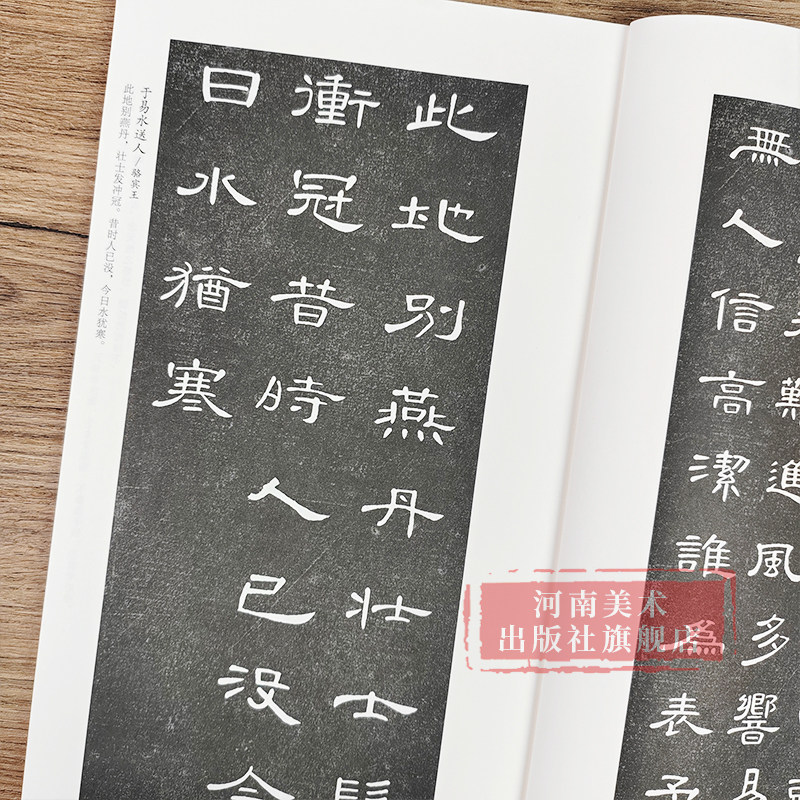 于易水送人 / 骆宾王
此地别燕丹，壮士发冲冠。昔时人已没，今日水犹寒。
此地別燕丹壯士髮
衝冠昔時人已没今
日水猶寒
難進風多響易
無人信高潔誰爲表予
河南美术
出版社旗舰店